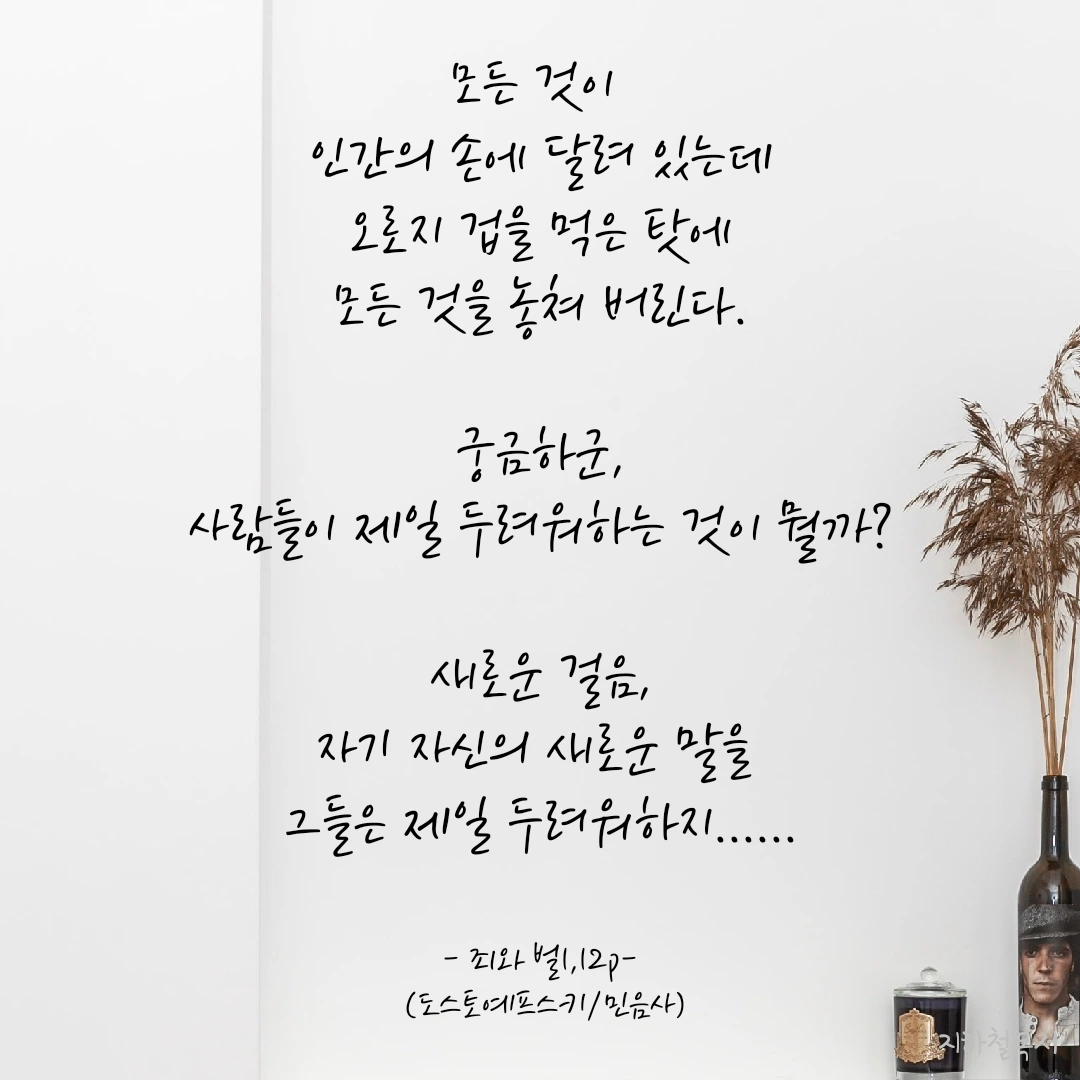 모든 것이
인간의 손에 달려 있는데
오로지 겁을 먹은 탓에
모든 것을 놓쳐 버린다.
궁금하군,
사람들이 제일 두려워하는 것이 뭘까?
새로운 걸음,
자기 자신의 새로운 말을
그들은 제일 두려워하지......
- 죄와 벌1,12p-
(도스토예프스키/민음사)
지하철독서